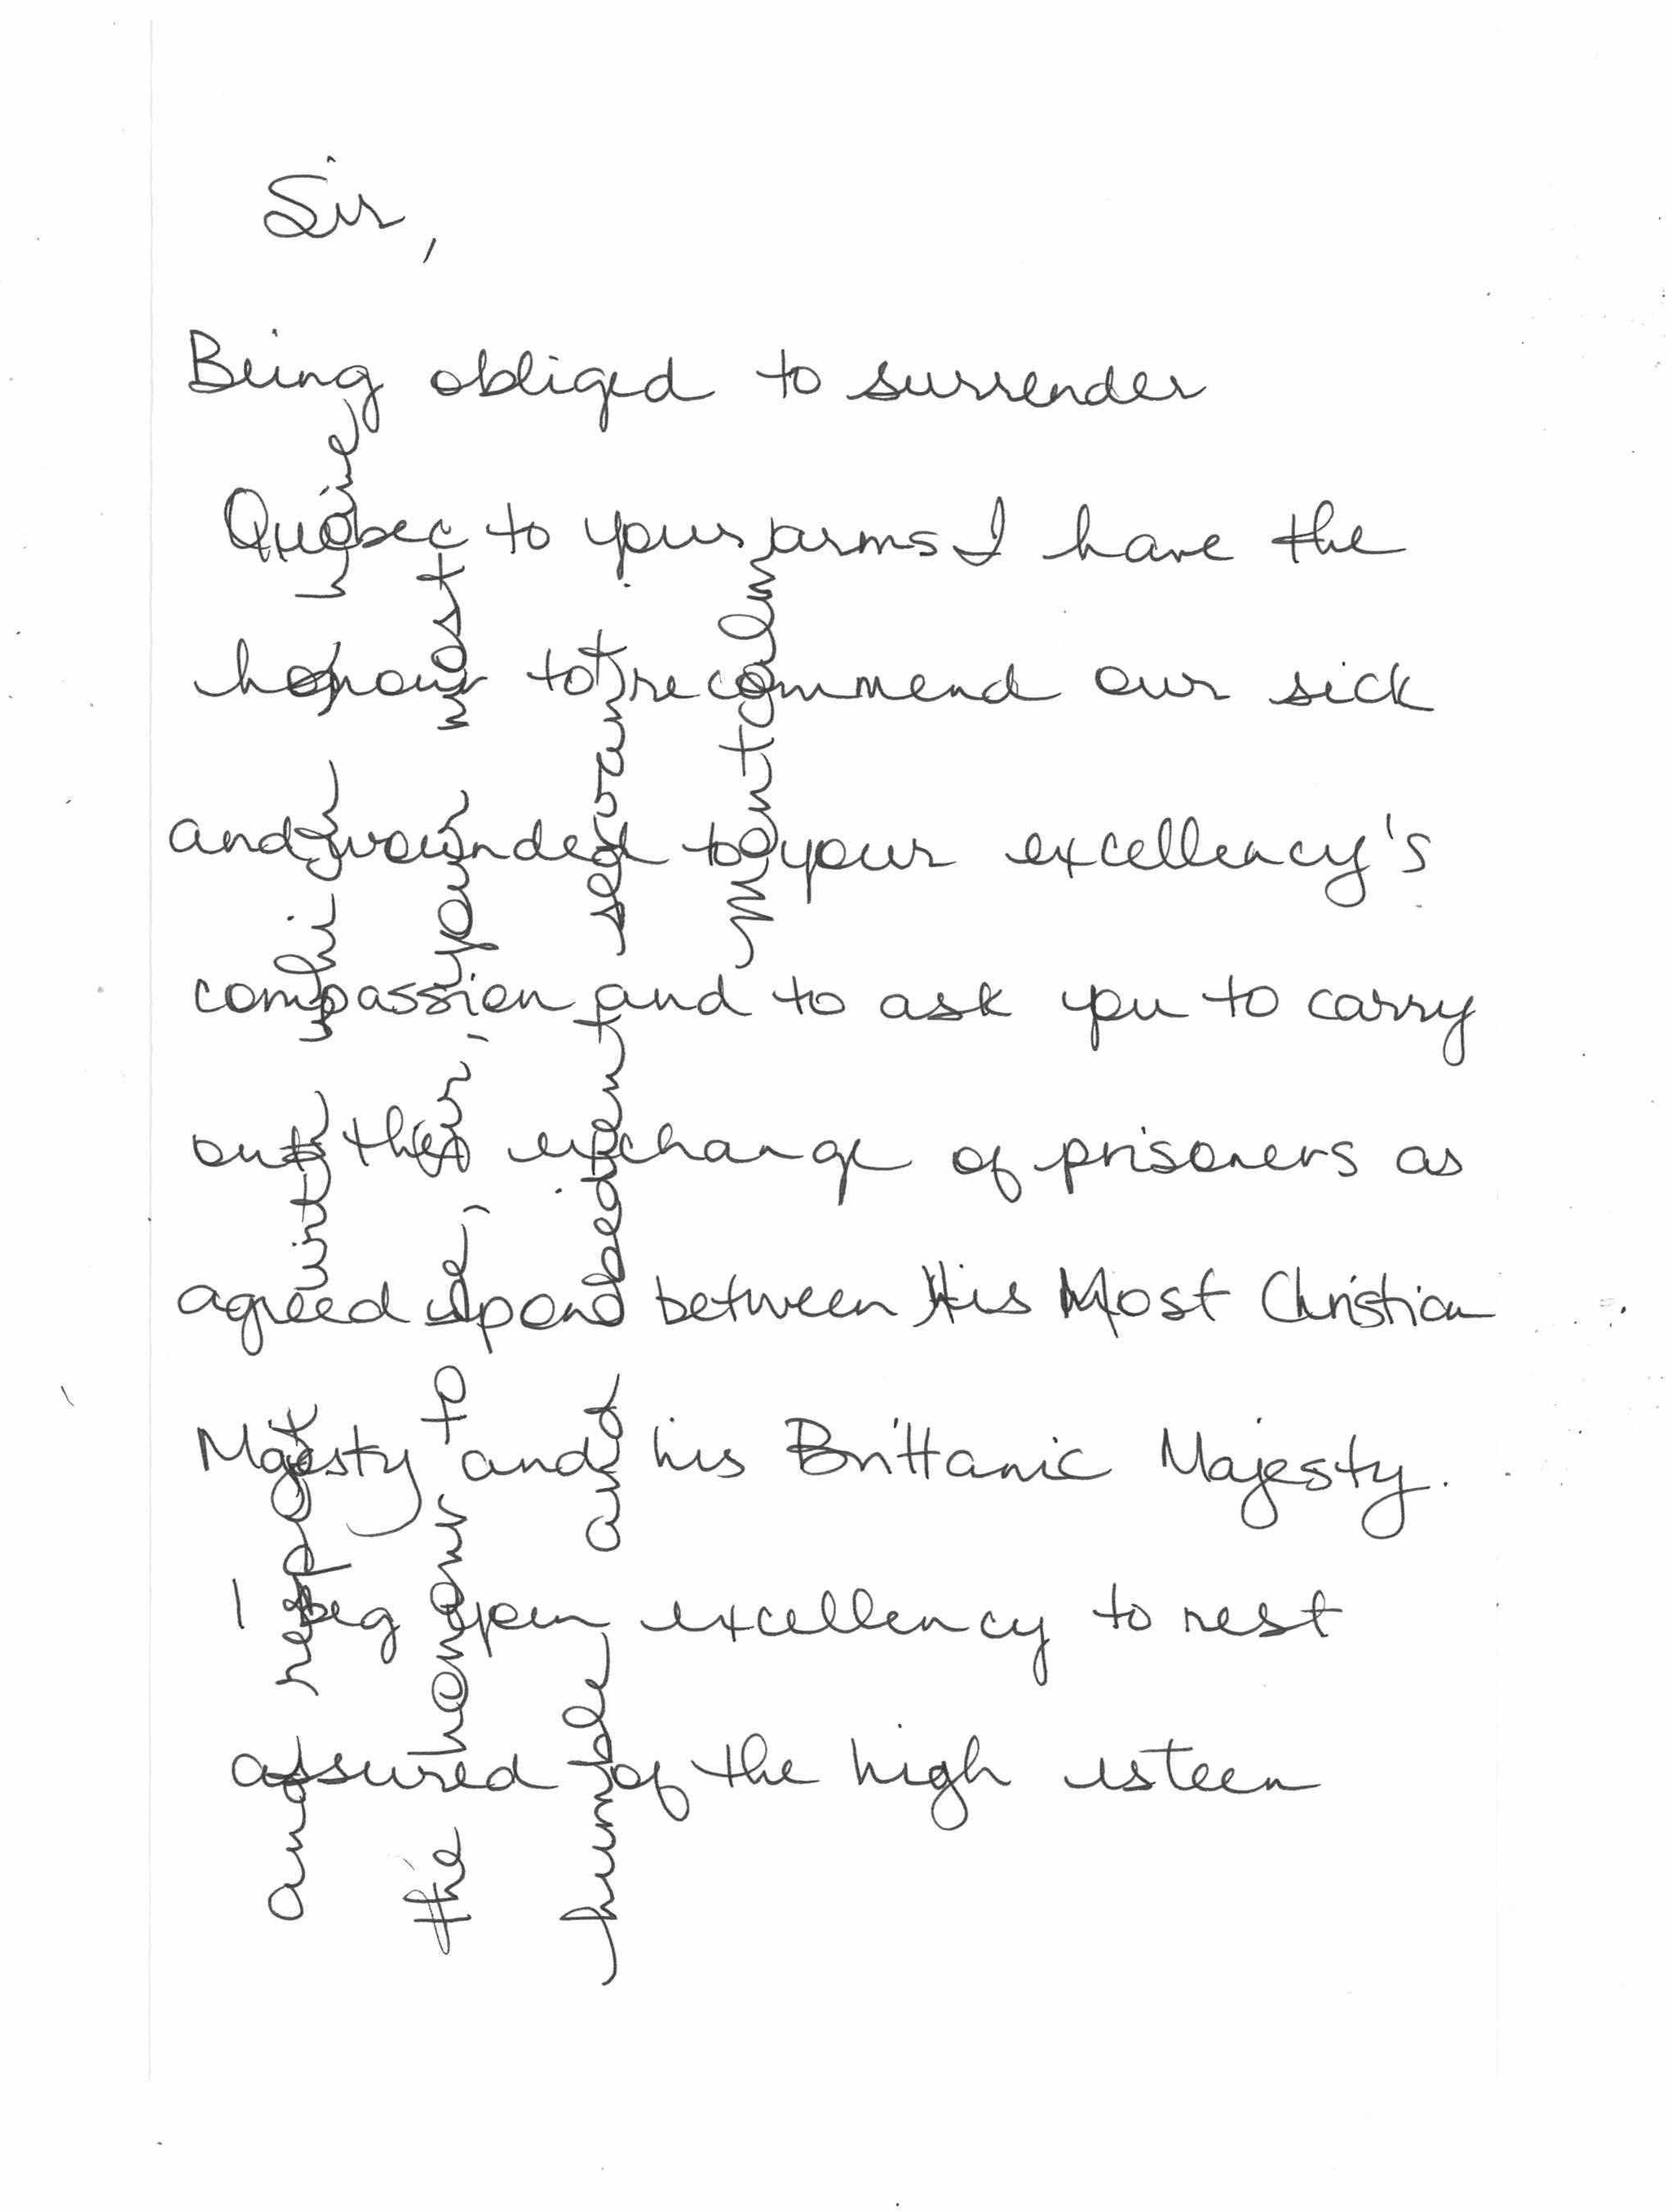 Sir,
Being obliged to surrender
Quebec to your arms I have the
honour to recommend our sick
and wounded to your excellency's
compassion and to ask you to carry
out the exchange of prisoners as
agreed upon between His Most Christian
Majesty and his Brittanic Majesty.
I beg your excellency to rest
assured of the high esteen
and respect with which I have
the honour to be, Sir, your most
humble and obedient servant
Montcalm